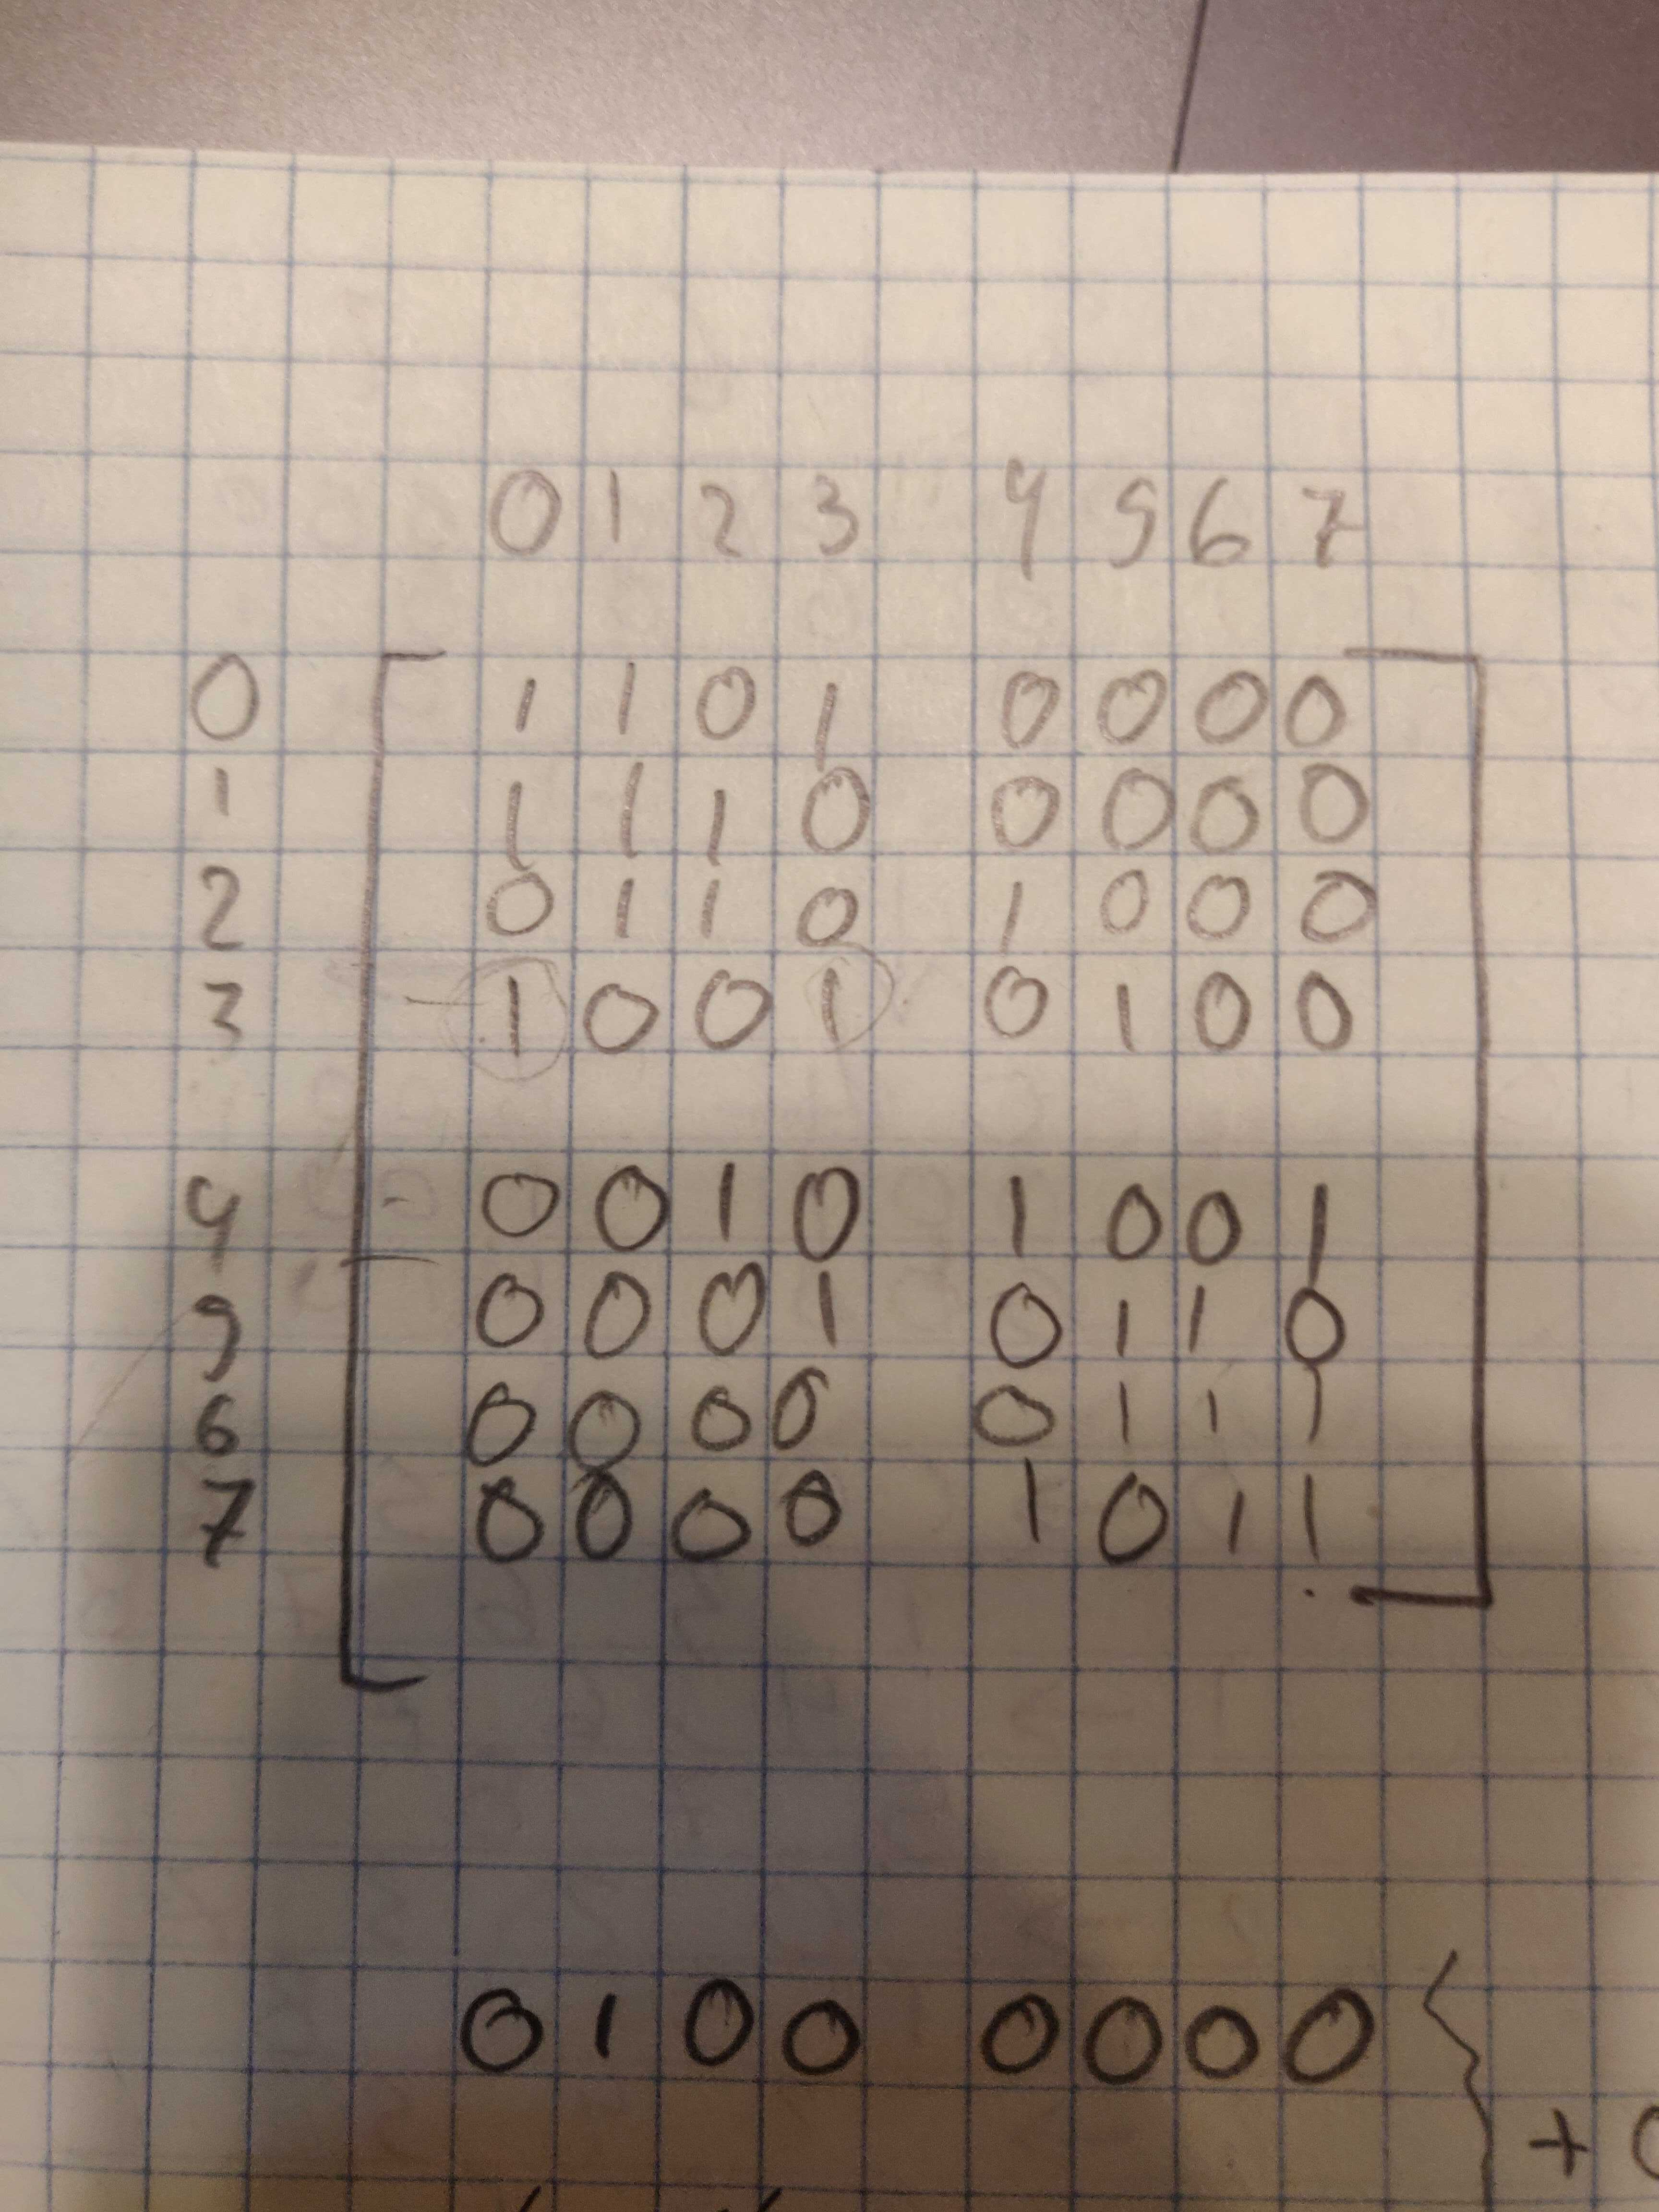 0 1 2 3 4 5 6 7
0 1 1 0 1 0 0 0 0
1 1 1 1 0 0 0 0 0
2 0 1 1 0 1 0 0 0
3 1 0 0 1 0 1 0 0
4 0 0 1 0 1 0 0 1
5 0 0 0 1 0 1 1 0
6 0 0 0 0 0 1 1 1
7 0 0 0 0 1 0 1 1
0 1 0 0 0 0 0 0
+